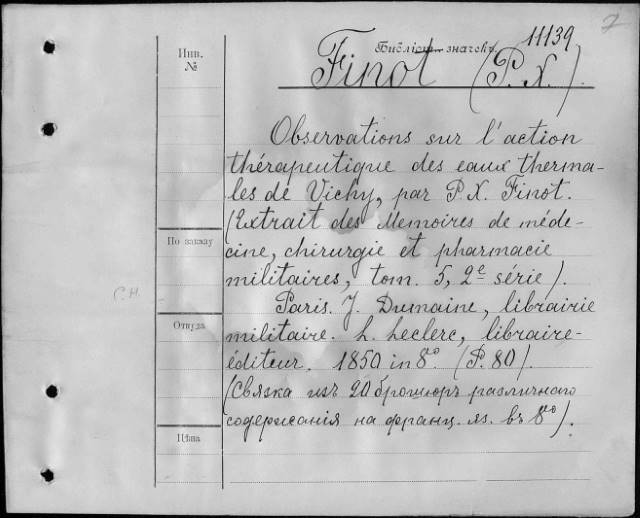 7
Инв.
№
Библіот. значекъ 11139
Finot (P. X.)
Observations sur l'action
thérapeutique des eaux therma-
les de Vichy, par P. X. Finot.
(Extrait des Memoires de méde-
По заказу
cine, chirurgie et pharmacie
militaires, tom. 5, 2e série).
С. Н.
Paris. J. Dumaine, librairie
Откуда
militaire. h. leclerc, libraire-
éditeur. 1850 in 8º. (P. 80)
(Связка изъ 20 брошюръ различнаго
содержанія на франц. яз. въ 8º).
Цѣна